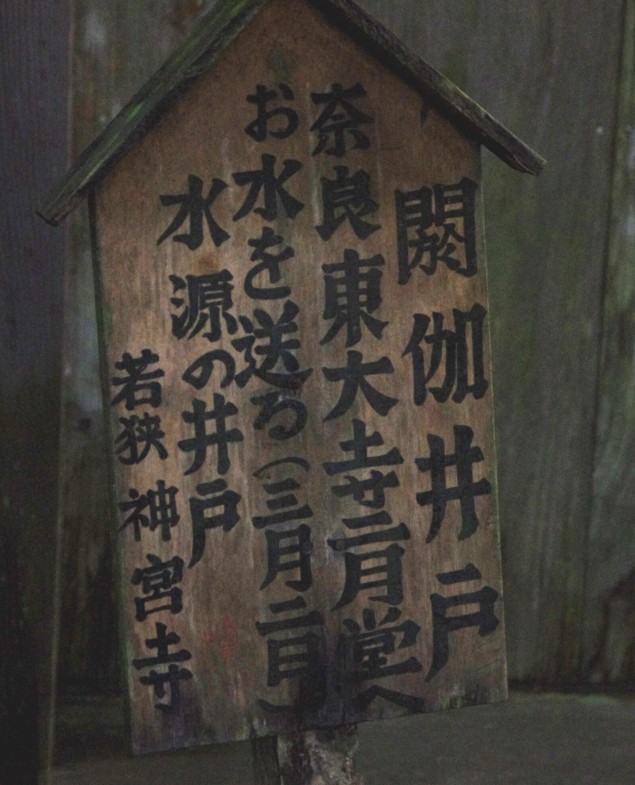 閼伽井戸
奈良東大寺二月堂へ
お水を送る（三月二日）
水源の井戸
若狭神宮寺